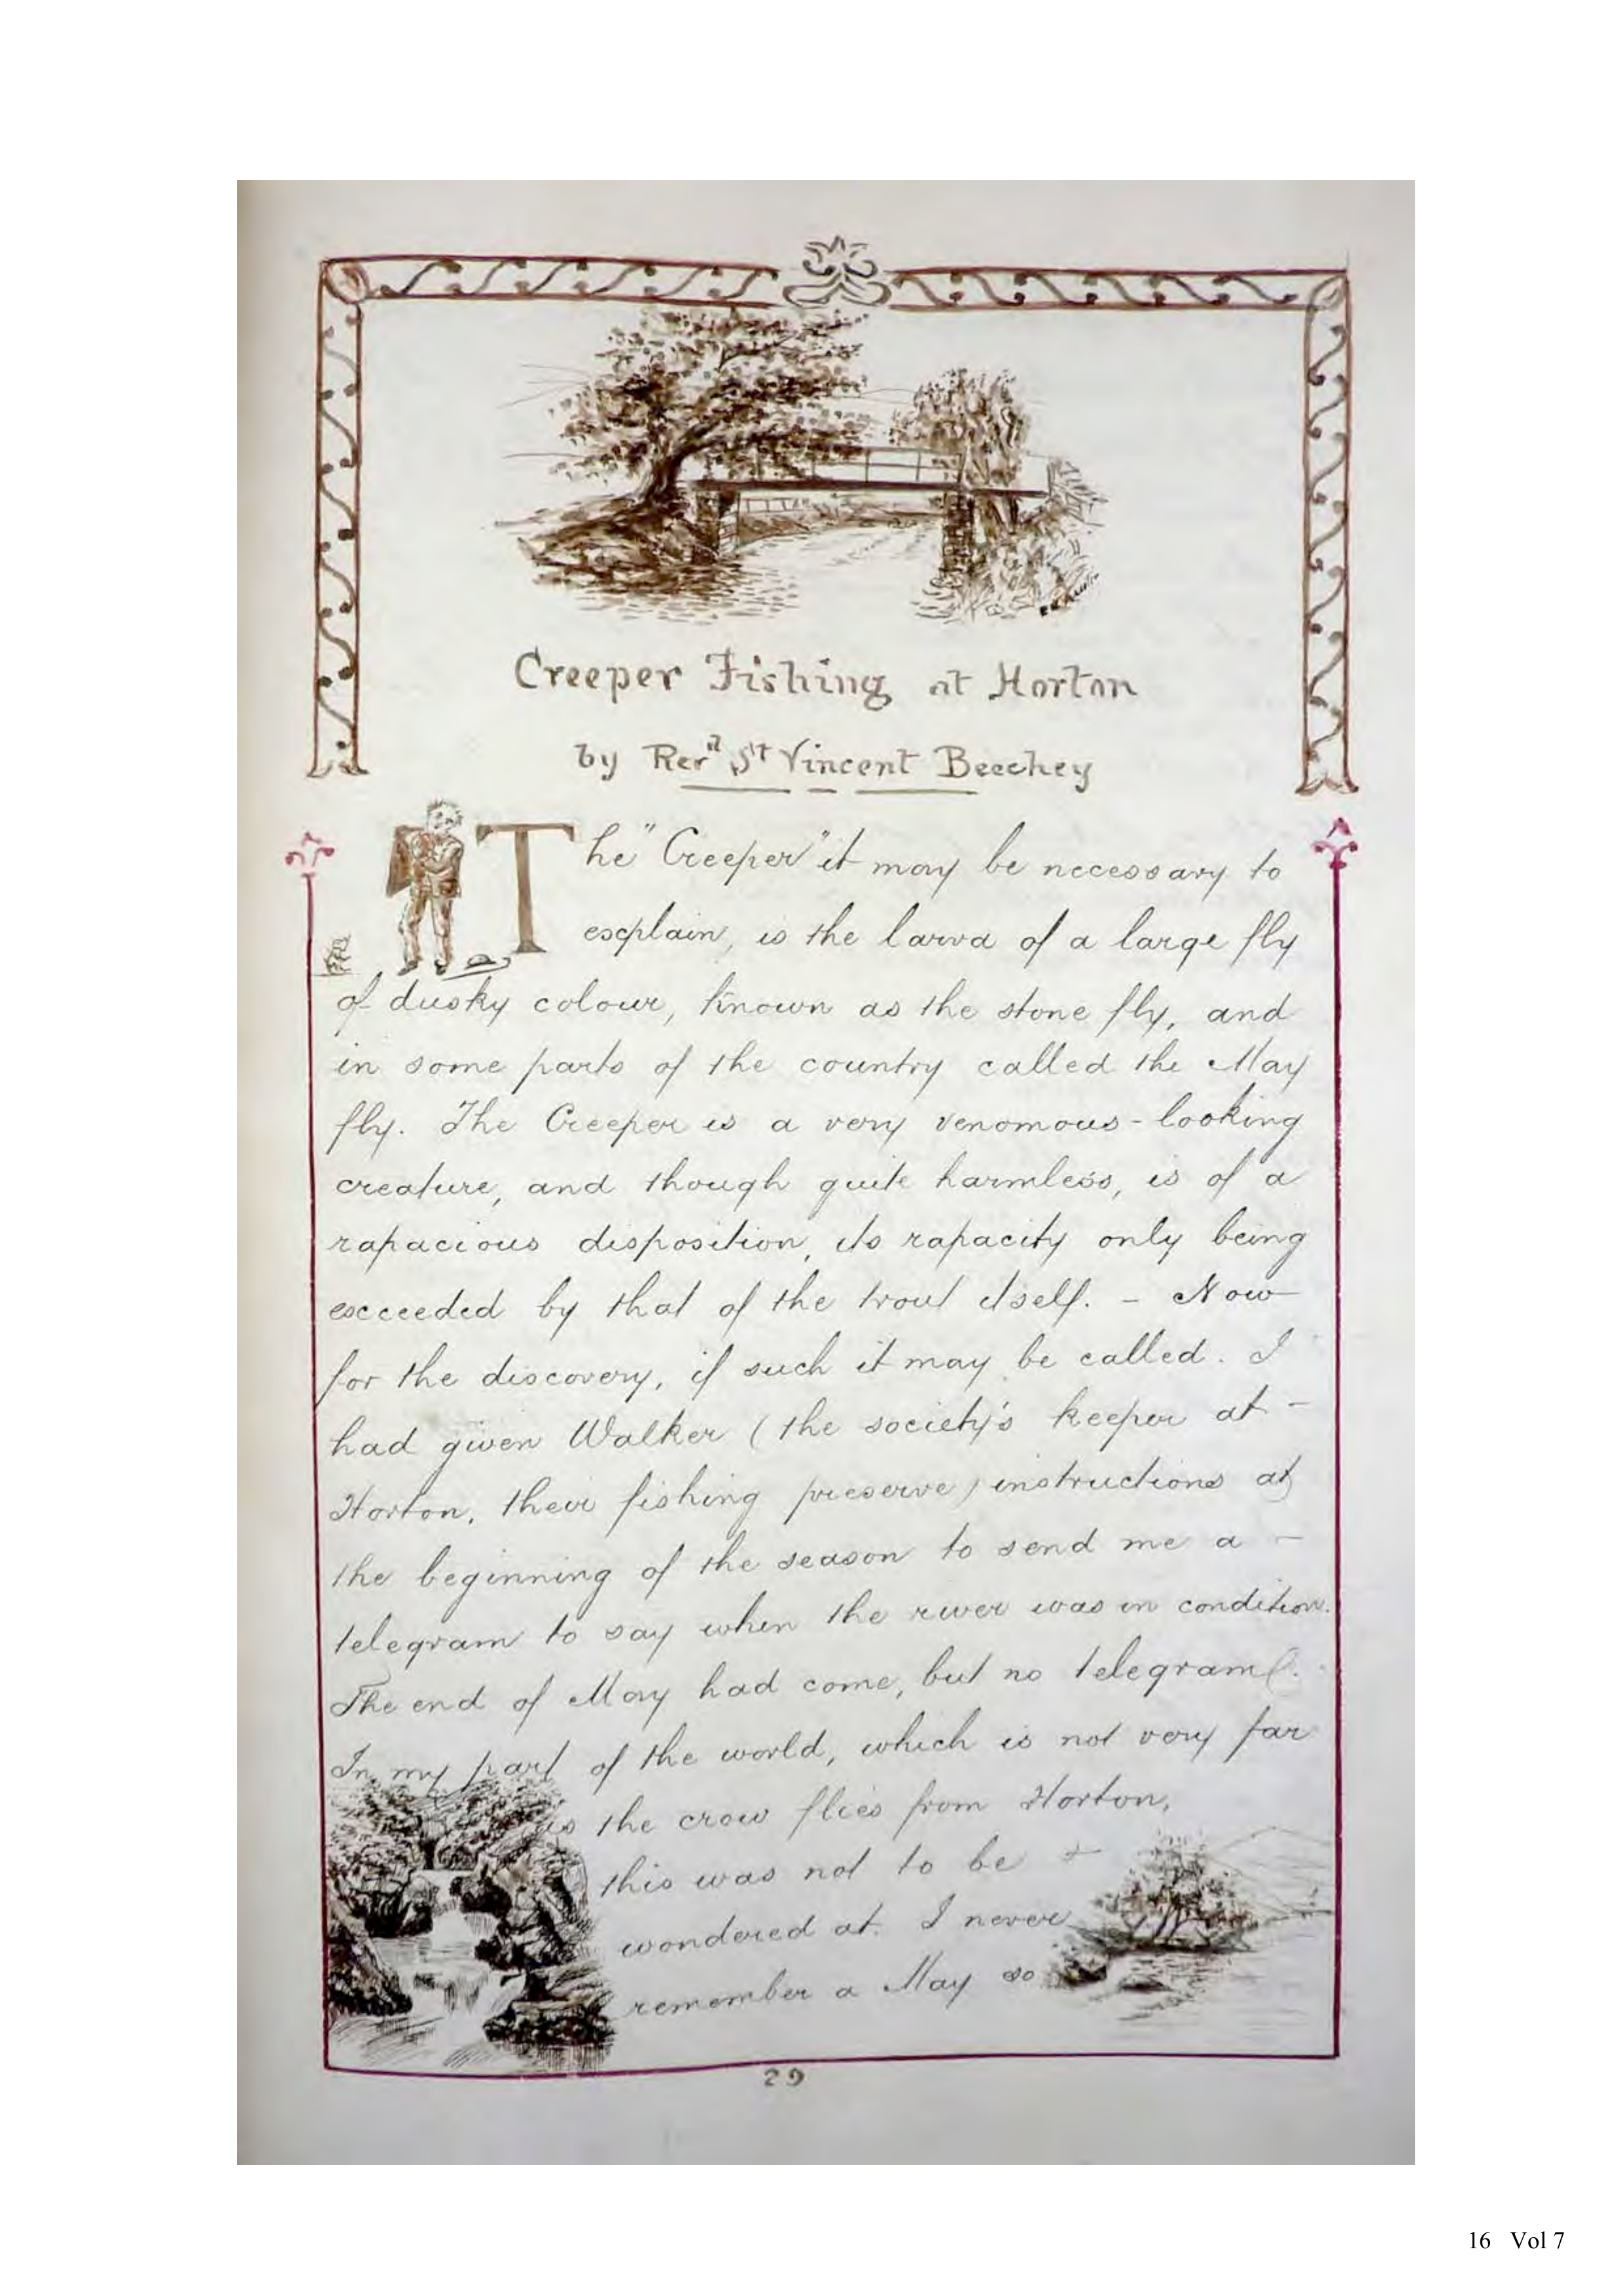 Creeper Fishing at Horton
by Revd St Vincent Beechey
The "Creeper" it may be necessary to
explain, is the larva of a large fly
of dusky colour, known as the stone fly, and
in some parts of the country called the May
fly. The Creeper is a very venomous-looking
creature, and though quite harmless, is of a
rapacious disposition, its rapacity only being
exceeded by that of the trout itself. - Now
for the discovery, if such it may be called. I
had given Walker (the society's keeper at -
Horton, their fishing preserve) instructions at
the beginning of the season to send me a -
telegram to say when the river was in condition.
The end of May had come, but no telegram.
In my part of the world, which is not very far
as the crow flies from Horton,
this was not to be
wondered at. I never
remember a May so
29
16 Vol 7